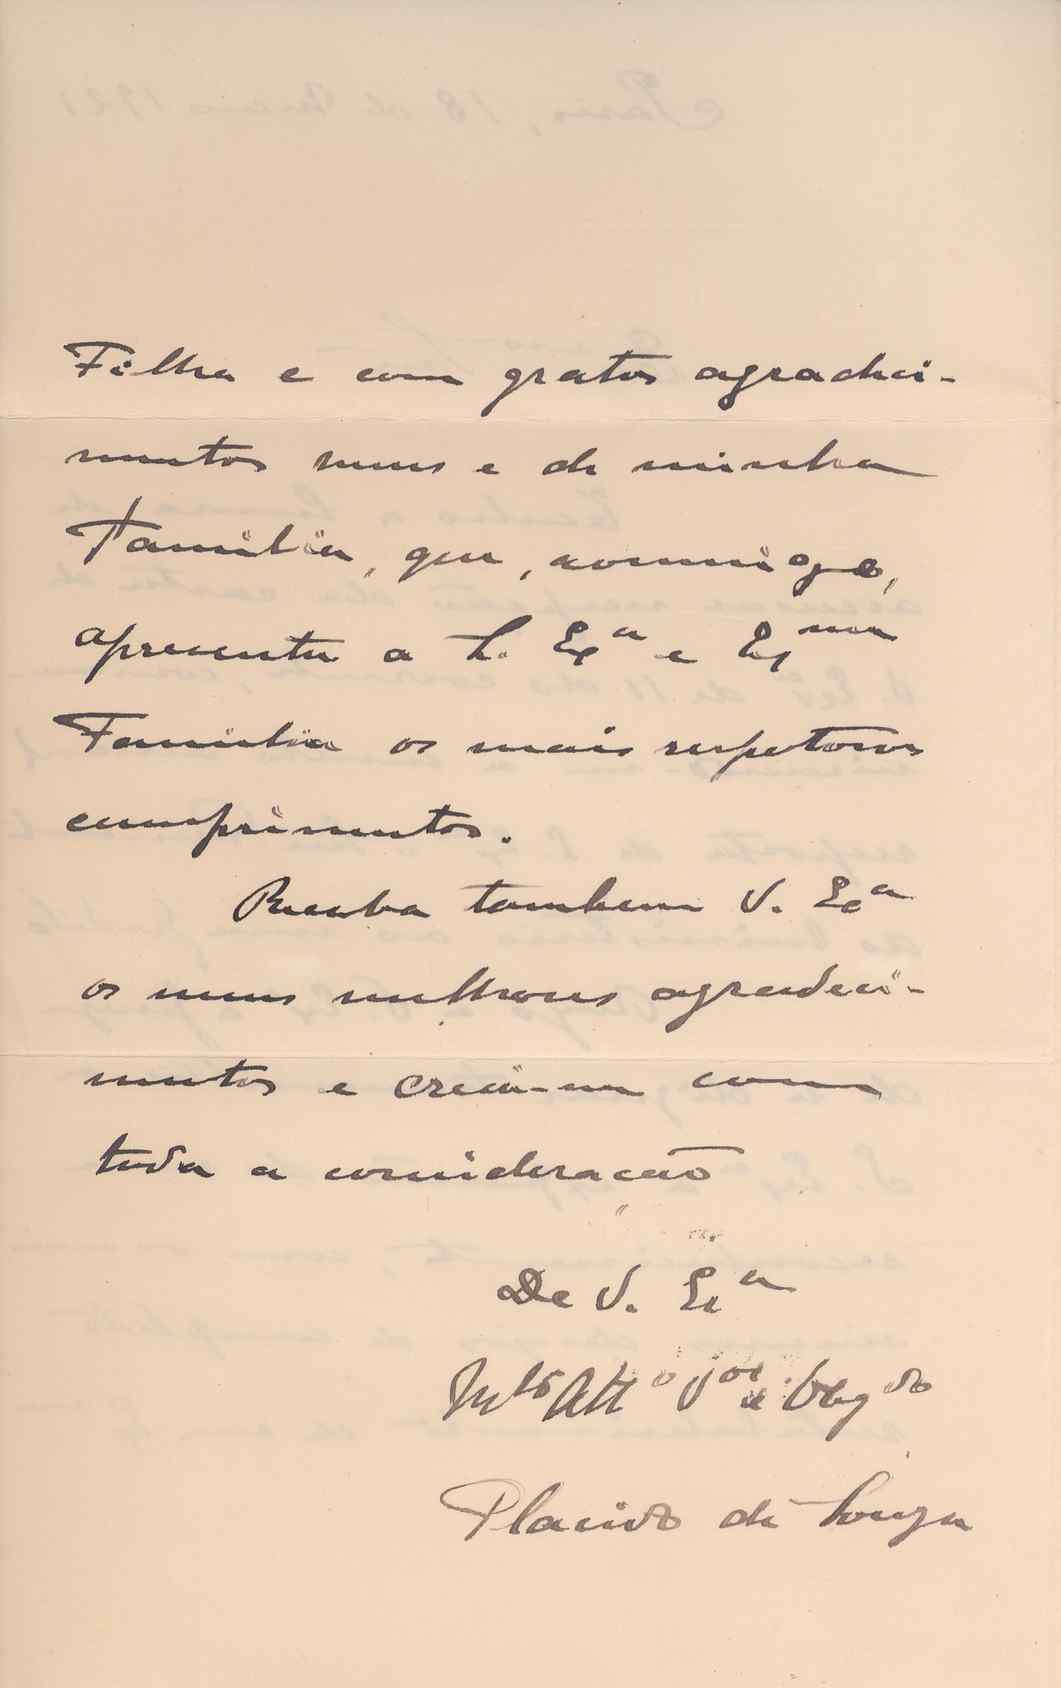 Filha e com gratos agradeci-
mentos meus e de minha
Familia, que, commigo,
apresenta a S. Exª e Exma
Familia os mais respeitosos
cumprimentos.
Receba tambem V. Exª
os meus melhores agradeci-
mentos e creia-me com
toda a consideração
De V. Exª
Mto Attº Vor e Obgdo
Placido de Souza